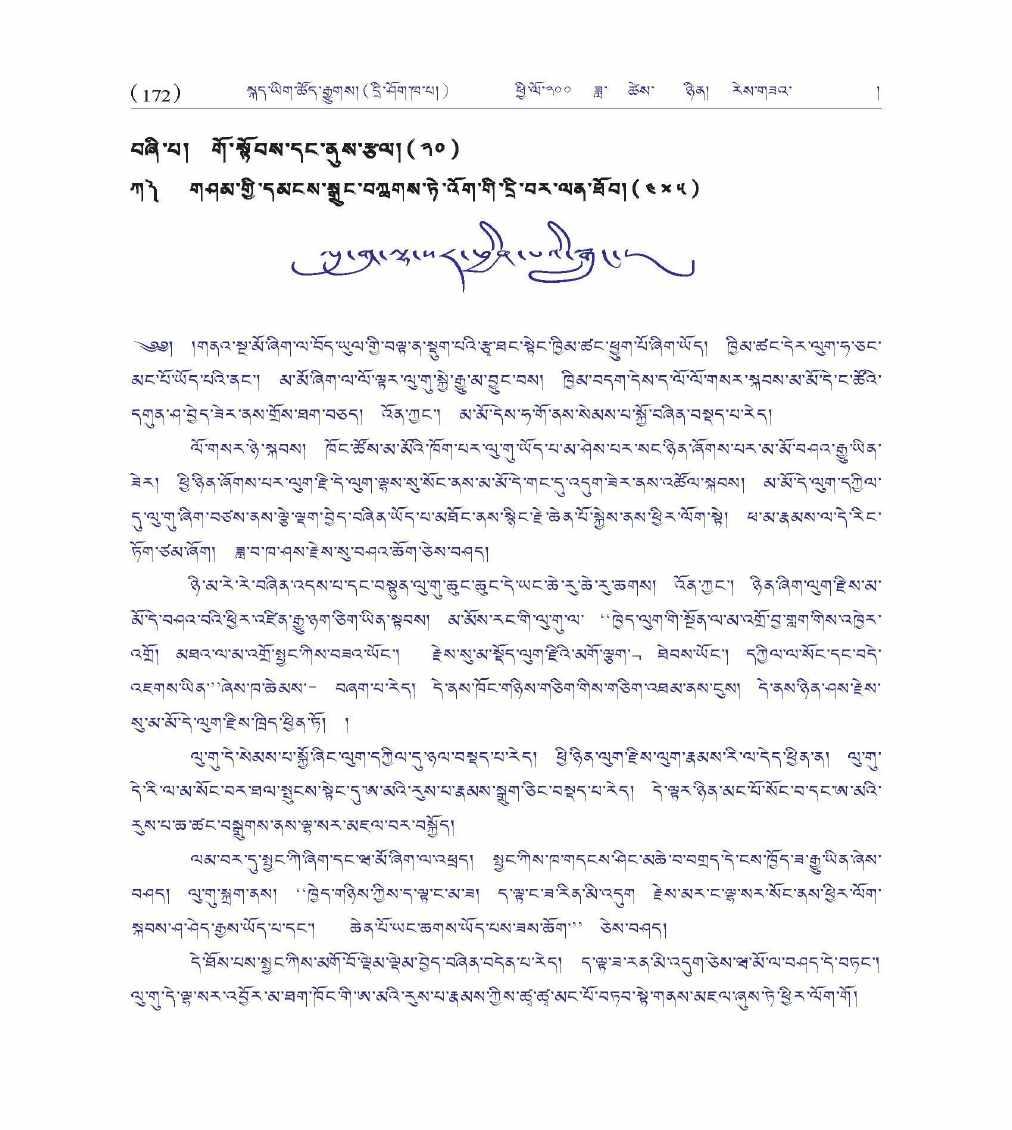 (172) སྐད་ཡིག་ཚོད་རྒྱུགས།(དྲི་ཤོག་ཁ་པ།) ཕྱི་ལོ་༢༠༠ ཟླ་ ཚེས་ ཉིན། རེས་གཟའ་ །
བཞི་པ། གོ་སྟོབས་དང་ནུས་རྩལ།(༢༠)
ཀ༽ གཤམ་གྱི་དམངས་སྒྲུང་བཀླགས་ཏེ་འོག་གི་དྲི་བར་ལན་ཐོབ།(༤×༥)
༄༅།། །གནའ་སྔ་མོ་ཞིག་ལ་བོད་ཡུལ་གྱི་བལྟ་ན་སྡུག་པའི་རྩྭ་ཐང་སྟེང་ཁྱིམ་ཚང་ཕྱུག་པོ་ཞིག་ཡོད། ཁྱིམ་ཚང་དེར་ལུག་ཧ་ཅང་
མང་པོ་ཡོད་པའི་ནང་། མ་མོ་ཞིག་ལ་ལོ་ལྟར་ལུ་གུ་སྐྱེ་རྒྱུ་མ་བྱུང་བས། ཁྱིམ་བདག་དེས་ད་ལོ་ལོ་གསར་སྐབས་མ་མོ་དེ་ང་ཚོའི་
དགུན་ཤ་བྱེད་ཟེར་ནས་གྲོས་ཐག་བཅད། འོན་ཀྱང་། མ་མོ་དེས་ཧ་གོ་ནས་སེམས་པ་སྐྱོ་བཞིན་བསྡད་པ་རེད།
ལོ་གསར་ཉེ་སྐབས། ཁོང་ཚོས་མ་མོའི་ཁོག་པར་ལུ་གུ་ཡོད་པ་མ་ཤེས་པར་སང་ཉིན་ཞོགས་པར་མ་མོ་བཤའ་རྒྱུ་ཡིན་
ཟེར། ཕྱི་ཉིན་ཞོགས་པར་ལུག་རྫི་དེ་ལུག་ལྷས་སུ་སོང་ནས་མ་མོ་དེ་གང་དུ་འདུག་ཟེར་ནས་འཚོལ་སྐབས། མ་མོ་དེ་ལུག་དཀྱིལ་
དུ་ལུ་གུ་ཞིག་བཙས་ནས་ལྕེ་ལྡག་བྱེད་བཞིན་ཡོད་པ་མཐོང་ནས་སྙིང་རྗེ་ཆེན་པོ་སྐྱེས་ནས་ཕྱིར་ལོག་སྟེ། ཕ་མ་རྣམས་ལ་དེ་རིང་
ཏོག་ཙམ་ཞོག། ཟླ་བ་ཁ་ཤས་རྗེས་སུ་བཤའ་ཆོག་ཅེས་བཤད།
ཉི་མ་རེ་རེ་བཞིན་འདས་པ་དང་བསྟུན་ལུ་གུ་ཆུང་ཆུང་དེ་ཡང་ཆེ་རུ་ཆེ་རུ་ཆགས། འོན་ཀྱང་། ཉིན་ཞིག་ལུག་རྫིས་མ་
མོ་དེ་བཤའ་བའི་ཕྱིར་འཛིན་རྒྱུ་ཉག་ཅིག་ཡིན་སྟབས། མ་མོས་རང་གི་ལུ་གུ་ལ་ “ཁྱེད་ལུག་གི་སྔོན་ལ་མ་འགྲོ་བྱ་གླག་གིས་འཁྱེར་
འགྲོ། མཐའ་ལ་མ་འགྲོ་སྤྱང་ཀིས་བཟའ་ཡོང་། རྗེས་སུ་མ་སྡོད་ལུག་རྫིའི་མགོ་ལྕག་¬ ཐེབས་ཡོང་། དཀྱིལ་ལ་སོང་དང་བདེ་
འཇགས་ཡིན་”ཞེས་ཁ་ཆེམས་- བཞག་པ་རེད། དེ་ནས་ཁོང་གཉིས་གཅིག་གིས་གཅིག་འཐམ་ནས་ངུས། དེ་ནས་ཉིན་ཤས་རྗེས་
སུ་མ་མོ་དེ་ལུག་རྫིས་ཁྲིད་ཕྱིན་ཏོ། །
ལུ་གུ་དེ་སེམས་པ་སྐྱོ་ཞིང་ལུག་དཀྱིལ་དུ་ཉལ་བསྡད་པ་རེད། ཕྱི་ཉིན་ལུག་རྫིས་ལུག་རྣམས་རི་ལ་དེད་ཕྱིན་ན། ལུ་གུ་
དེ་རི་ལ་མ་སོང་བར་ཐལ་སྤུངས་སྟེང་དུ་ཨ་མའི་རུས་པ་རྣམས་སྒྲུག་ཅིང་བསྡད་པ་རེད། དེ་ལྟར་ཉིན་མང་པོ་སོང་བ་དང་ཨ་མའི་
རུས་པ་ཆ་ཚང་བསྒྲུགས་ནས་ལྷ་སར་མཇལ་བར་བསྐྱོད།
ལམ་བར་དུ་སྤྱང་ཀི་ཞིག་དང་ཝ་མོ་ཞིག་ལ་འཕྲད། སྤྱང་ཀིས་ཁ་གདངས་ཤིང་མཆེ་བ་བགྲད་དེ་ངས་ཁྱོད་ཟ་རྒྱུ་ཡིན་ཞེས་
བཤད། ལུ་གུ་སྐྲག་ནས། “ཁྱེད་གཉིས་ཀྱིས་ད་ལྟ་ང་མ་ཟ། ད་ལྟ་ང་ཟ་རིན་མི་འདུག རྗེས་མར་ང་ལྷ་སར་སོང་ནས་ཕྱིར་ལོག་
སྐབས་ཤ་ཤེད་རྒྱས་ཡོད་པ་དང་། ཆེན་པོ་ཡང་ཆགས་ཡོད་པས་ཟས་ཆོག་” ཅེས་བཤད།
དེ་ཐོས་པས་སྤྱང་ཀིས་མགོ་བོ་ལྡེམ་ལྡེམ་བྱེད་བཞིན་བདེན་པ་རེད། ད་ལྟ་ཟ་རན་མི་འདུག་ཅེས་ཝ་མོ་ལ་བཤད་དེ་བཏང་།
ལུ་གུ་དེ་ལྷ་སར་འབྱོར་མ་ཐག་ཁོང་གི་ཨ་མའི་རུས་པ་རྣམས་ཀྱིས་ཚྭ་ཚྭ་མང་པོ་བཏབ་སྟེ་གནས་མཇལ་ཞུས་ཏེ་ཕྱིར་ལོག་གོ།